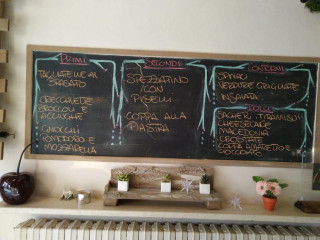 PRIMI
TAGLIATELLE AL
SFASATO
ORECCHIETTE
BROCCOLI E
ACCIUGHE
GNOCCHI
POMODORO E
MOZZARELLA
SECONDI
SPEZZATINO
CON
PISELLI
COPPA ALLA
PIASTRA
CONTORNI
SPINACI
VERDURE GRIGLIATE
INSALATA
DOLCI
SACHER TIRAMISU
CHEESECAKE
MACEDONIA
CROSTATE
COPPA AMARETTO E
CIOCCOLATO